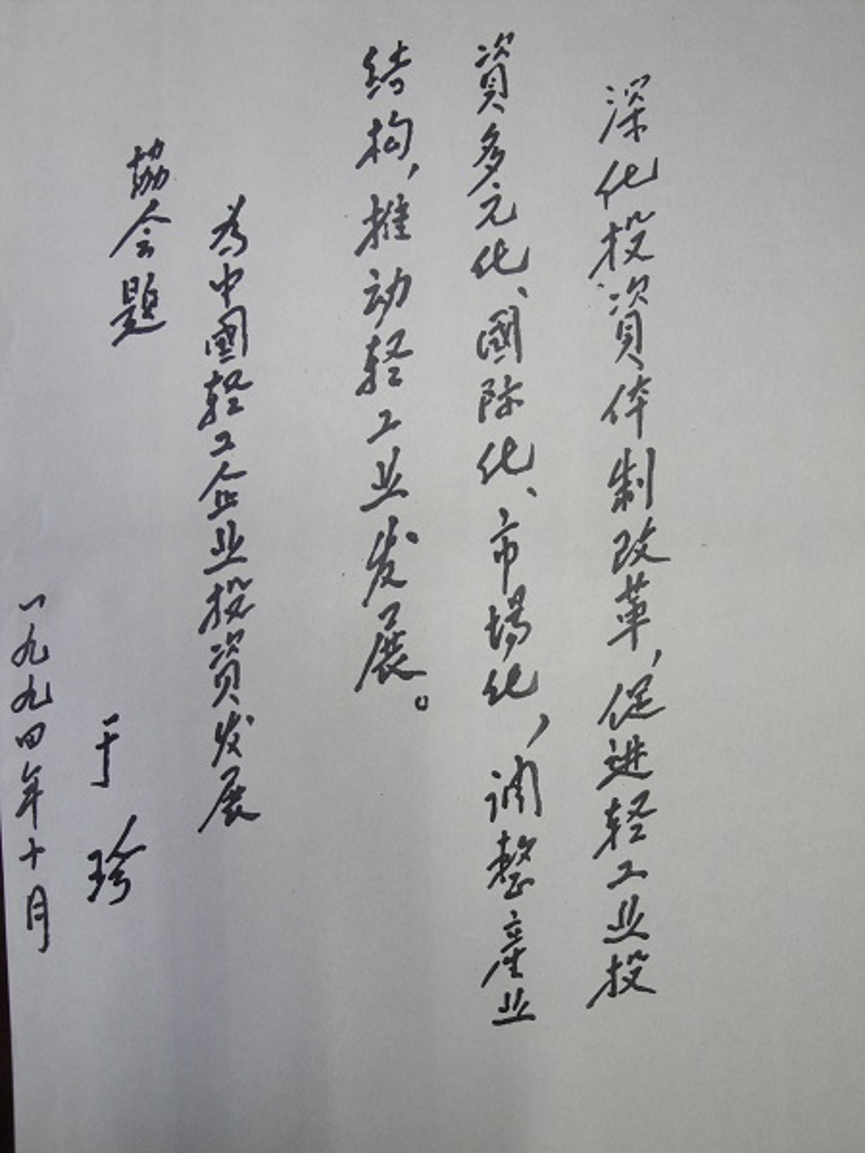 深化投資体制改革，促进轻工业投
資多元化、國际化、市場化，调整產业
结构，推动轻工业发展。
为中國轻工企业投資发展
協会題
于珍
一九九四年十月